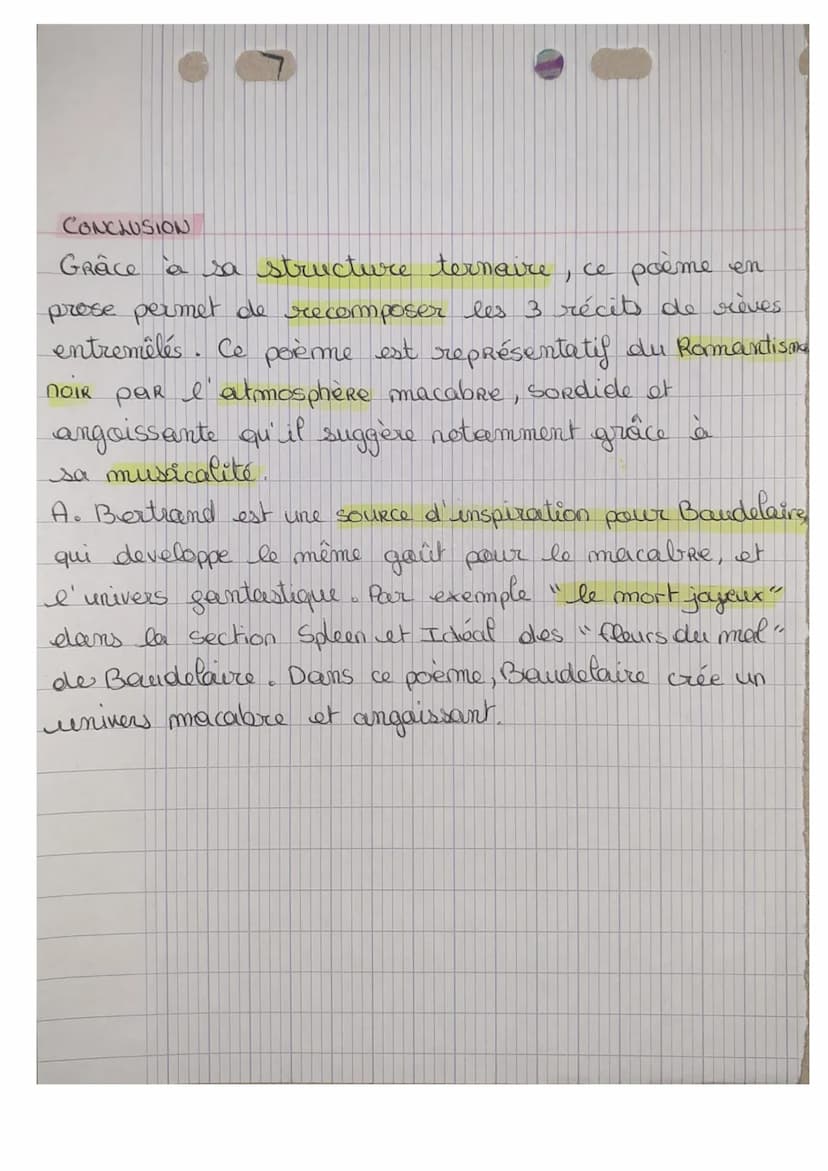 CONCLUSION
Grâce à sa structure ternaire, ce poème en
prose permet de recomposer les 3 récits de rêves
entremêlés. Ce poème est représentatif du Romantisme
noir par l'atmosphère macabre, sordide et
angoissante qu'il suggère notamment grâce à
sa musicalité.
A. Bertrand est une source d'inspiration pour Baudelaire,
qui developpe le même goût pour le macabre, et
l'univers fantastique. Par exemple "le mort joyeux"
dans la section Spleen et Idéal des "fleurs du mal"
de Baudelaire. Dans ce poème, Baudelaire crée un
univers macabre et angoissant.